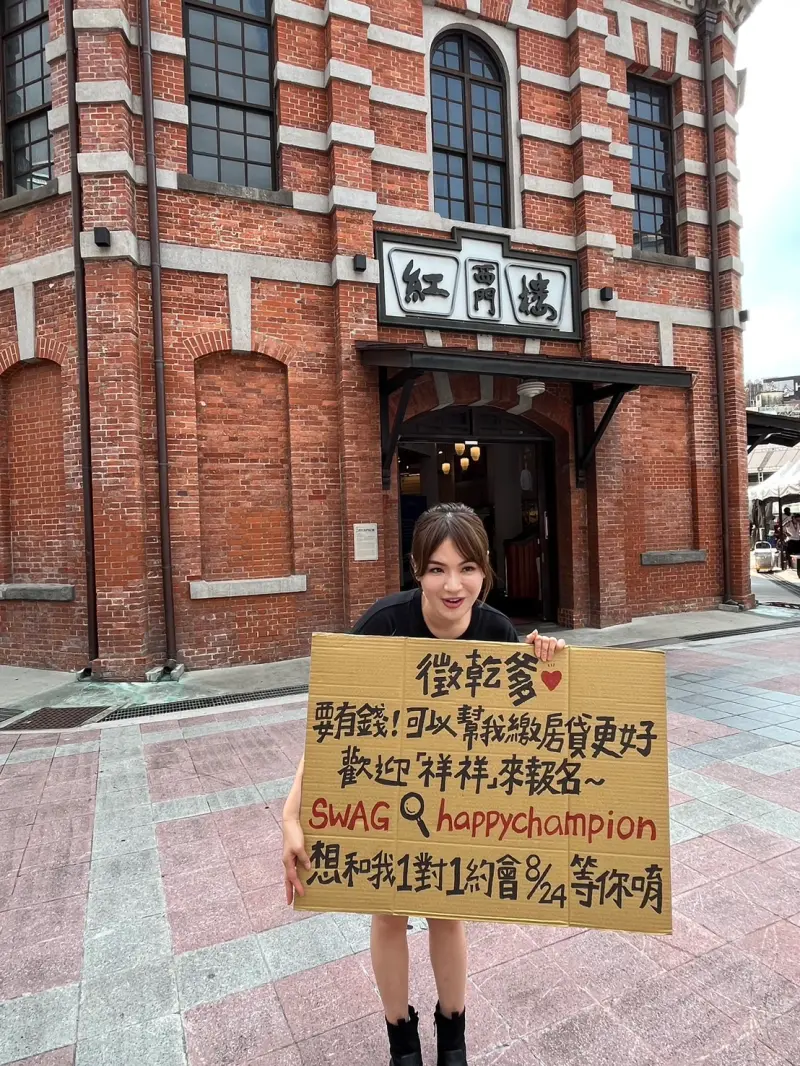 紅西門樓
徵乾爹❤
要有錢!可以幫我繳房貸更好
歡迎「祥祥」來報名~
SWAG🔍happychampion
想和我1對1約會8/24等你唷